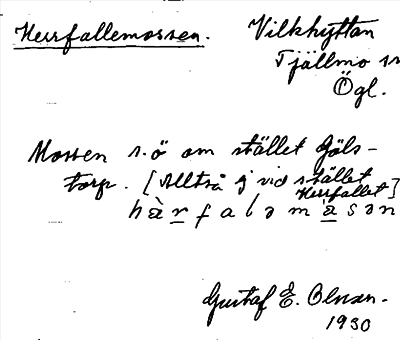 Herrfallemossen.
Vilkhyttan
Tjällmo sn
Ögl.
Mossen s.ö om stället Göls-
torp. [Alltså ej vid stället
Herrfallet]
hὰr̲faləmὰ̲sən
Gustaf E. Olnsen.
1930